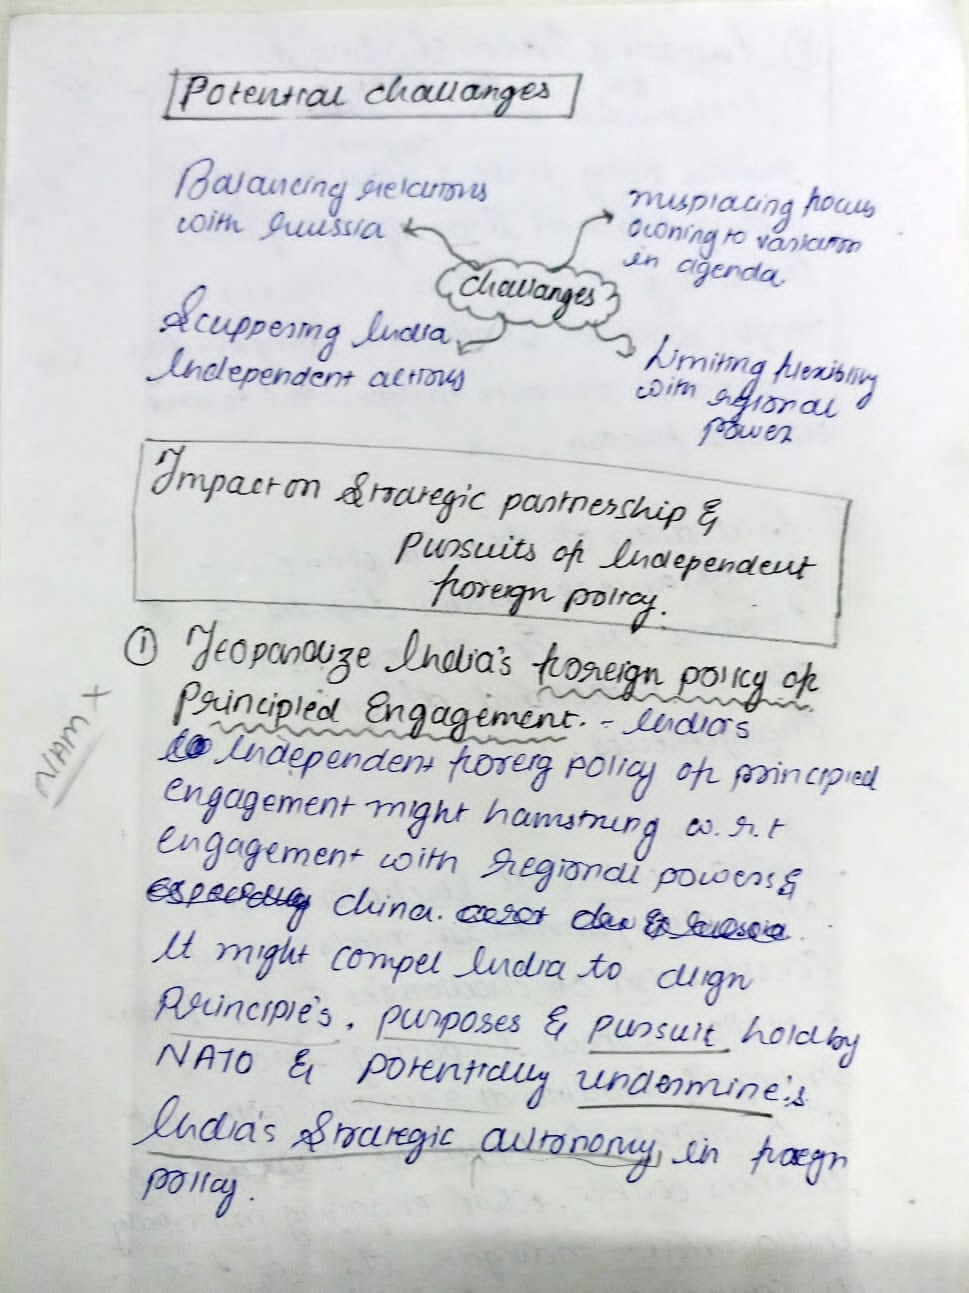 Potential challanges
Balancing relations
with Russia
misplacing focus
owning to variation
in agenda
challanges
Scuppering India
Independent actions
Limiting flexibility
with regional
power
Impact on Strategic partnership &
Pursuits of Independent
foreign policy.
① Jeopardize India's foreign policy of
Principled Engagement. - India's
Independent foreig policy of principled
engagement might hamstrung w.r.t
engagement with regional powers &
especially china.
It might compel India to align
Principle's, purposes & pursuit hold by
NATO & potentially undermine's
India's Strategic autonomy, in foregn
policy.
NAM +